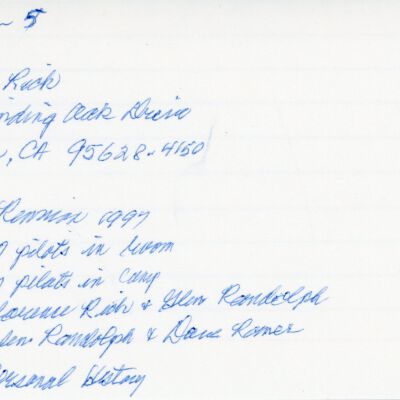 - 5
Rick
nding Oak Drive
, CA 95628-4150
Reunion 1997
pilots in room
pilots in camp
larence Rick & Glen Randolph
len Randolph & Dave Romer
ersonal History